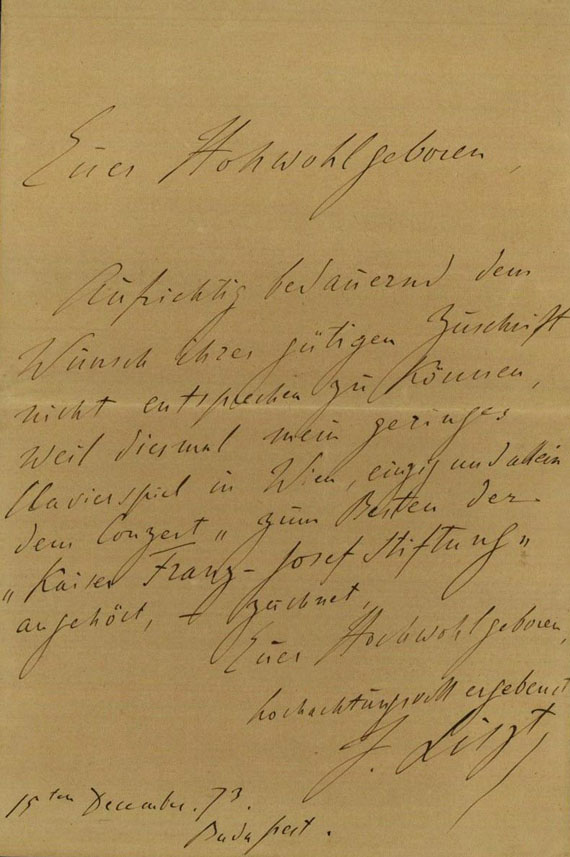 Euer Hohwohlgeboren,
Aufrichtig bedauernd dem
Wunsch ihrer gütigen Zuschrift
nicht entsprechen zu können,
weil diesmal mein geringes
Clavierspiel in Wien, einzig und allein
dem Conzert „ zum Besten der
„ Kaiser Franz-Josef Stiftung „
angehört, – zeichnet,
Euer Hochwohlgeboren,
hochachtungsvoll ergebenst
F. Liszt
15ten December. 73.
Budapest.